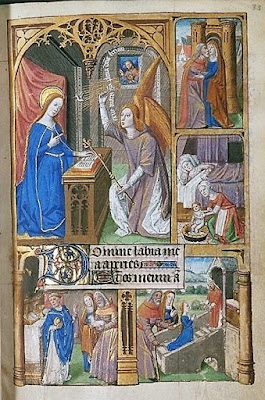 Domine labia me
a aperies
Et os meum a